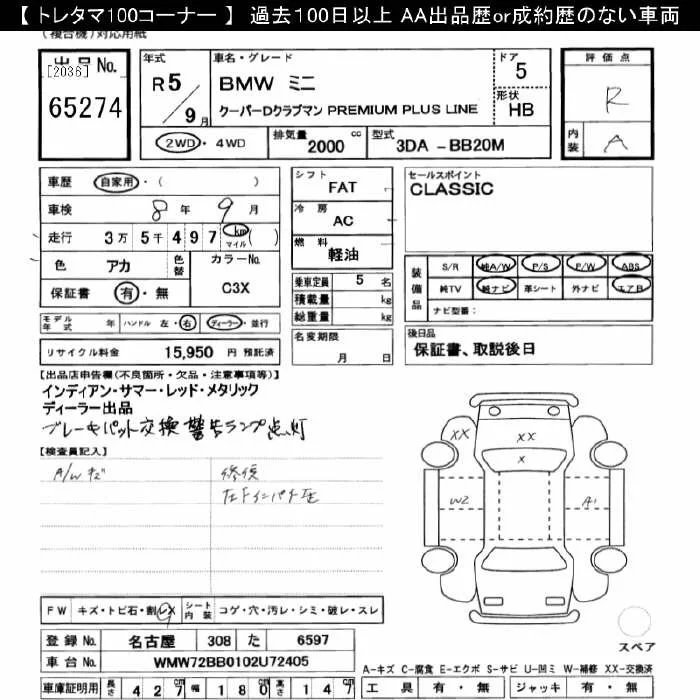 【 トレタマ100コーナー 】 過去100日以上 AA出品歴or成約歴のない車両
(複合機)対応用紙
出品No.
[2036]
65274
年式
R5/9月
車名・グレード
BMW ミニ
クーパーDクラブマン PREMIUM PLUS LINE
ドア
5
形状
HB
評価点
R
内装
A
2WD・4WD
排気量 2000 cc
型式 3DA-BB20M
車歴 自家用・( )
車検 8年 9月
走行 3万 5千 4 9 7 km マイル ( )
色 アカ
色替
カラーNo.
C3X
保証書 有・無
モデル年式 年 ハンドル 左・右 ディーラー・並行
リサイクル料金 15,950 円 預託済
シフト
FAT
冷房
AC
燃料
軽油
乗車定員 5 名
積載量 kg
総重量 kg
名変期限
月 日
セールスポイント
CLASSIC
装備品
S/R 純A/W P/S P/W ABS
純TV 純ナビ 革シート 外ナビ エアB
ナビ型番:
後日品
保証書、取説後日
【出品店申告欄(不良箇所・欠品・注意事項等)】
インディアン・サマー・レッド・メタリック
ディーラー出品
ブレーキパット交換 警告ランプ点灯
【検査員記入】
A/W キズ
修復
左Fインパネ
XX
XX
X
W2
A1
FW キズ・トビ石・割レX
シート内装 コゲ・穴・汚レ・シミ・破レ・スレ
登録No. 名古屋 308 た 6597
車台No. WMW72BB0102U72405
車庫証明用 長さ 427cm 幅 180cm 高さ 147cm
スペア
A-キズ C-腐食 E-エクボ S-サビ U-凹ミ W-補修 XX-交換済
工具 有・無 ジャッキ 有・無